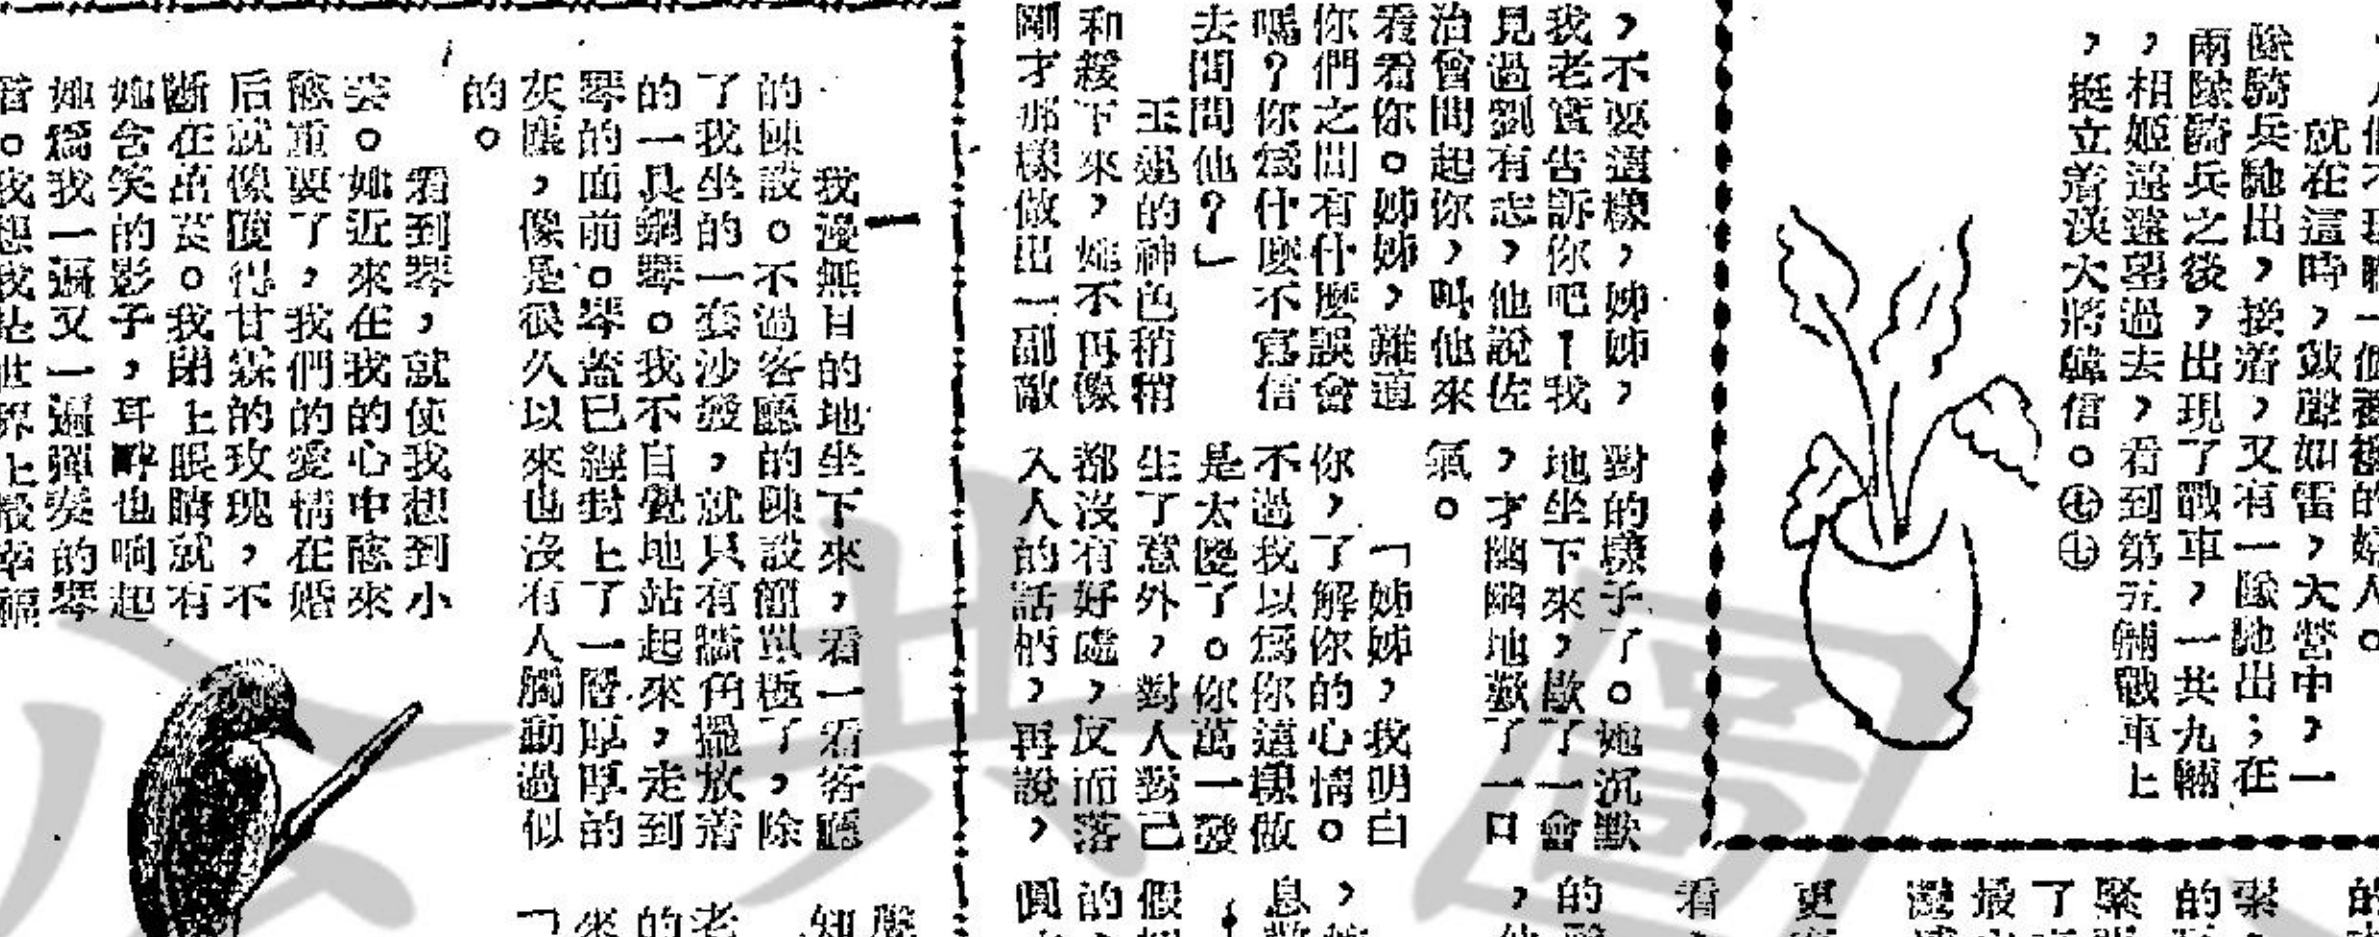 就在這時，鼓聲如雷，大營中，一
隊騎兵馳出，接着，又有一隊馳出；在
兩隊騎兵之後，出現了戰車，一共九輛
，相姬遠遠望過去，看到第五輛戰車上
，挺立着漢大將韓信。㊆㊆
，不要這樣，姊姊，
我老實告訴你吧！我
見過劉有志，他說佐
治曾問起你，叫他來
看看你。姊姊，難道
你們之間有什麼誤會
嗎？你為什麼不寫信
去問問他？」
玉蓮的神色稍稍
和緩下來，她不再像
剛才那樣做出一副敵
對的樣子了。她沉默
地坐下來，歇了一會
，才幽幽地歎了一口
氣。
「姊姊，我明白
你，了解你的心情。
不過我以為你這樣做
是太傻了。你萬一發
生了意外，對人對己
都沒有好處，反而落
入人的話柄，再說，
一
我漫無目的地坐下來，看一看客廳
的陳設。不過客廳的陳設簡單極了，除
了我坐的一套沙發，就只有牆角擺放着
的一具鋼琴。我不自覺地站起來，走到
琴的面前。琴蓋已經封上了一層厚厚的
灰塵，像是很久以來也沒有人觸動過似
的。
看到琴，就使我想到小
雲。她近來在我的心中愈來
愈重要了，我們的愛情在婚
后就像獲得甘霖的玫瑰，不
斷在茁長。我閉上眼睛就有
她含笑的影子，耳畔也响起
她為我一遍又一遍彈奏的琴
音。我想我是世界上最幸福
公共圖